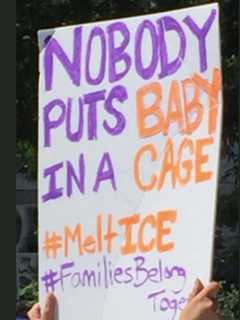 NOBODY
PUTS BABY
IN A CAGE
#MeltICE
#FamiliesBelong
Together